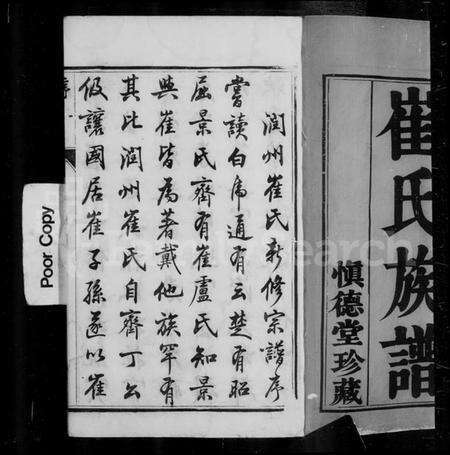 崔氏族譜
慎德堂珍藏
潤州崔氏新修宗譜序
嘗讀白虎通有云楚有昭
屈景氏齊有崔盧氏知景
與崔皆為著戴他族罕有
其比潤州崔氏自齊丁公
伋讓國居崔子孫遂以崔
序
一
Poor Copy